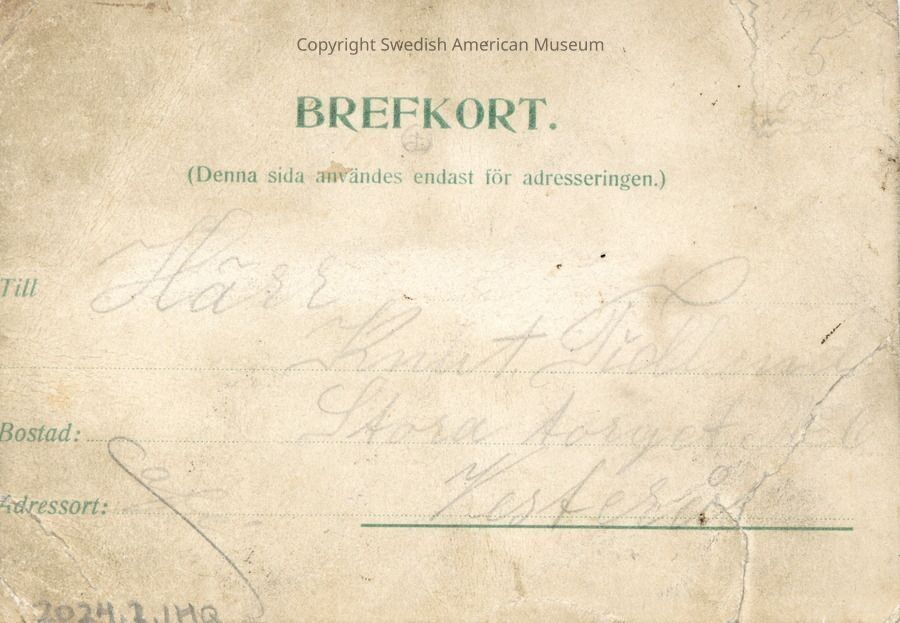 Copyright Swedish American Museum
5
BREFKORT.
(Denna sida användes endast för adresseringen.)
Till Härr
Knut
Bostad: Stora torget
Adressort: Vesterås
2024.2.1HQ